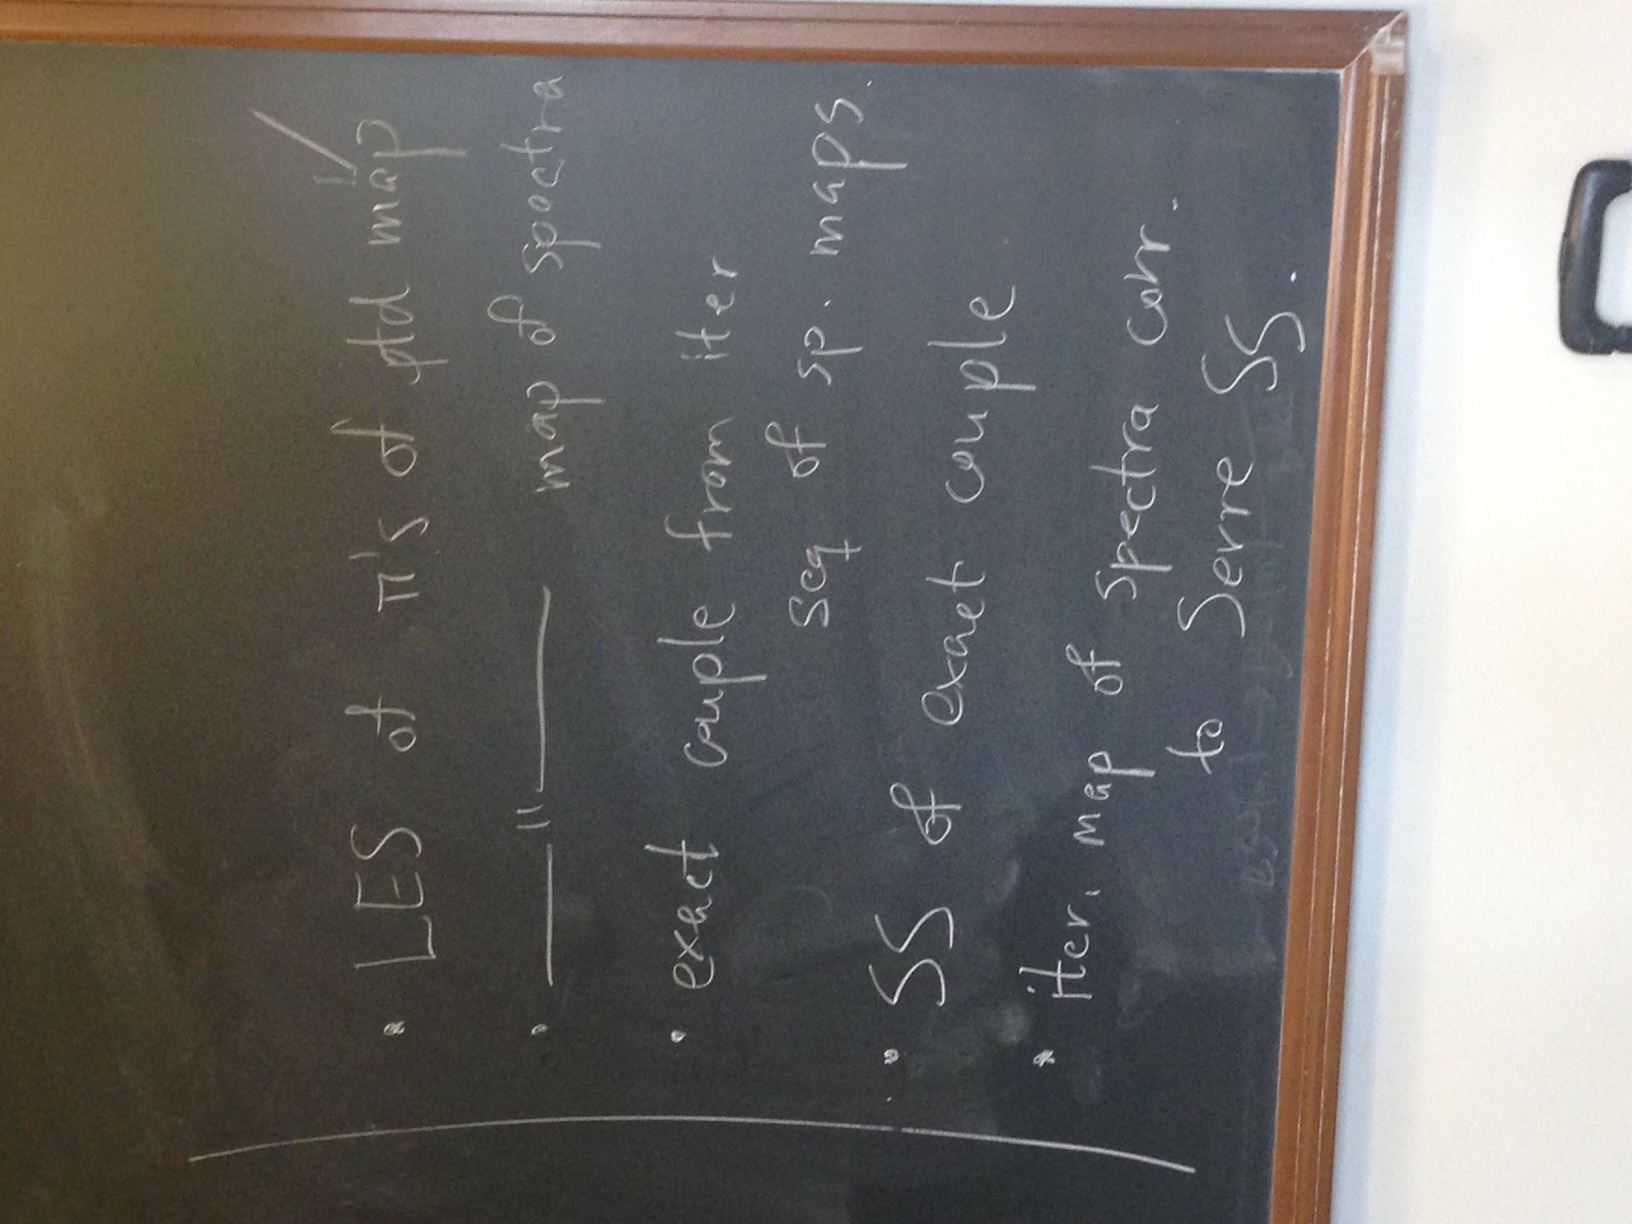 • LES of π's of ptd map ✓
• ——"—— map of spectra
• exact couple from iter
seq of sp. maps.
• SS of exact couple
• iter. map of spectra corr.
to Serre SS.